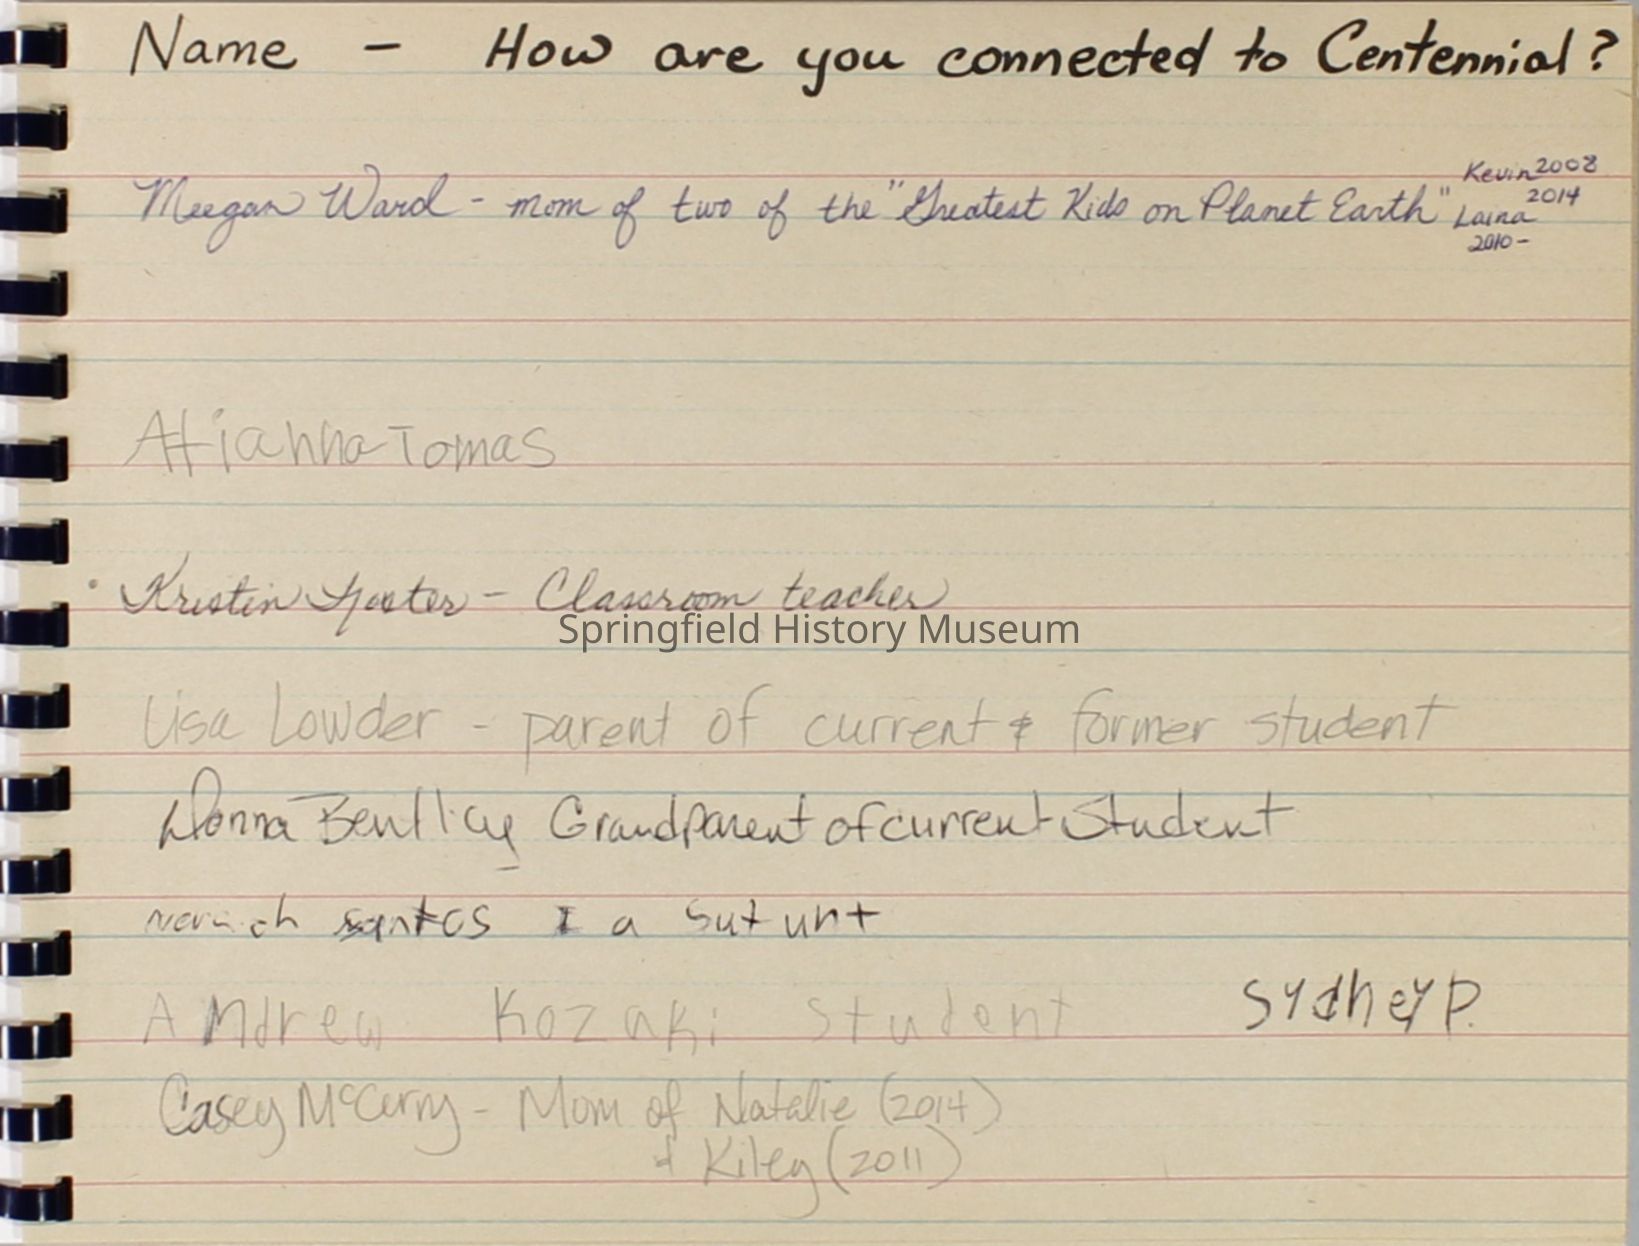 Name - How are you connected to Centennial?
Meegan Ward - mom of two of the "Greatest Kids on Planet Earth" Kevin 2008
2014
Laina
2010-
Atianna Tomas
Kristin - Classroom teacher
Springfield History Museum
Lisa Lowder - parent of current & former student
Donna Bentley Grandparent of current Student
santos I a sutunt
Andrew Kozaki Student Sydney P.
Casey McCurry - Mom of Natalie (2014)
& Kiley (2011)